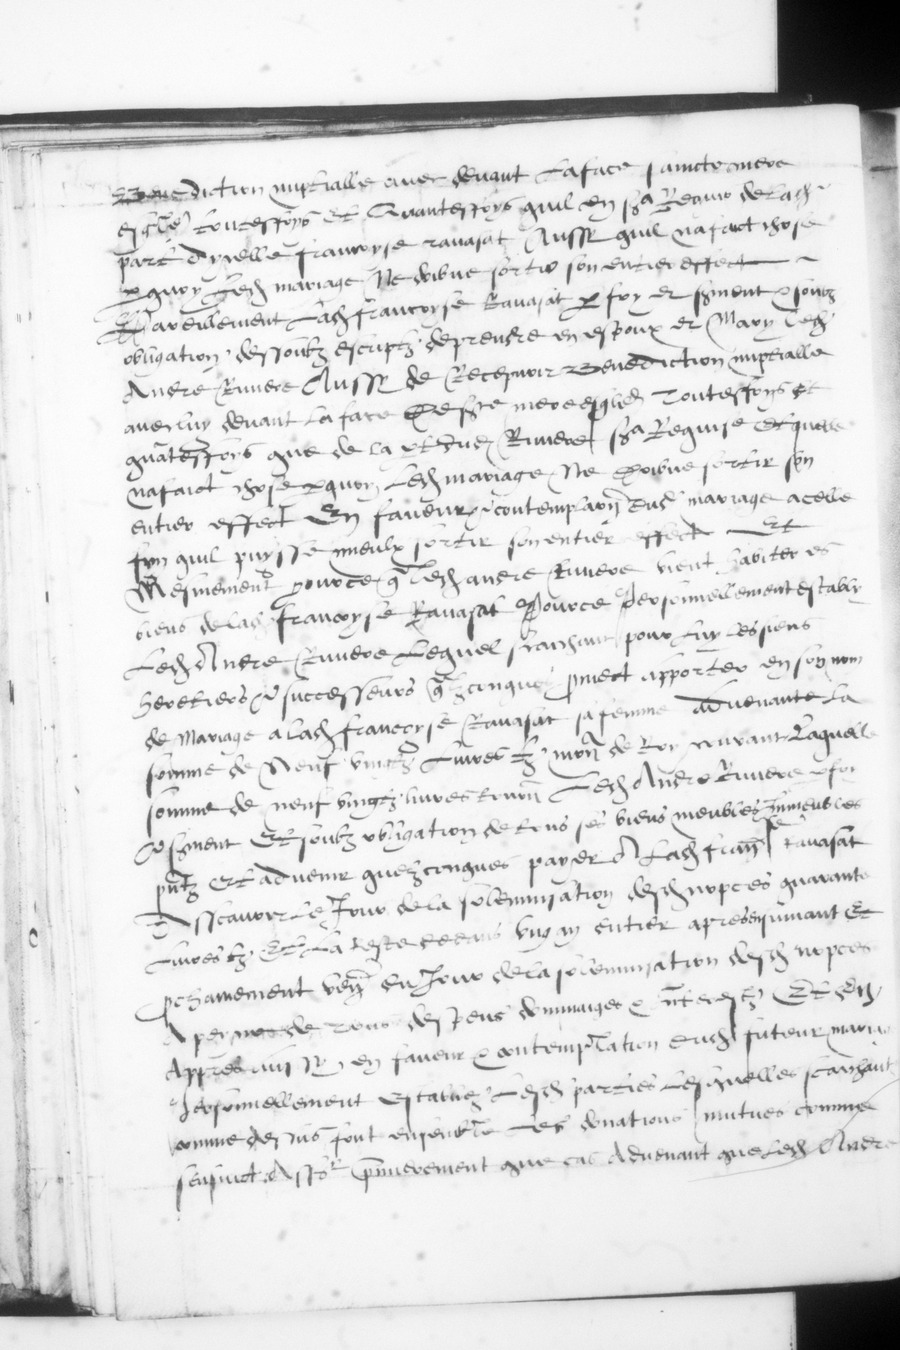 Benediction nuptialle avec devant la face saincte mere
esglē toutesfoys et quantesfoys quil en sera Requis de lad
part dycelle francoyse ravasat Aussy quil na faict chose
p quoy led mariage Ne doibve sortir son entier effect
Pareillement Lad francoyse Ravasat p foy et serment & soubz
obligation dessoubz escriptz de prendre en espoux et Mary led
Andre Riviere Aussy de Recepvoir Benediction nuptialle
avec luy devant la face De ste mere esglise Toutesfoys et
quātesfoys que de la p dud Riviere sera Requise Et quelle
na faict chose p quoy led mariage Ne doibve sortir son
entier effect En faveur & contemplaōn dud mariage a celle
fyn quil puysse mieulx sortir son entier effect Et
Mesmement pource q led andre Riviere vient habiter es
biens de lad francoyse Ravasat Pource Personnellement estably
Led Andre Riviere Lequel scaichant pour luy les siens
heretiers & successeurs q̄lzconques promect apporter en son nom
de Mariage a lad francoyse Ravasat sa femme advenante La
somme de Neuf vingtz Livres tz mōn de Roy courant Laquelle
somme de neuf vingtz livres tourn Led Andre Riviere p foy
& serment Et soubz obligation de tous ses biens meubles Immeubles
pntz Et advenir quelzconques payer A Lad francse ravasat
Asscavoir Le Jour de la solempnisation desd nopces quarante
Livres tz Et La reste dedans ung an entier apres ensuivant Et
prochainement ven du Jour de la solempnisation desd nopces
A peyne de Tous despens dommaiges & Interestz Et En
Appres aussy en faveur & contemplation dud futeur mariage
Personnellement establiz Lesd parties Lesquelles scaichant
comme dessus font ensemble Les donations mutues comme
sensuict Asscr Premierement que cas Advenant que Led Andre